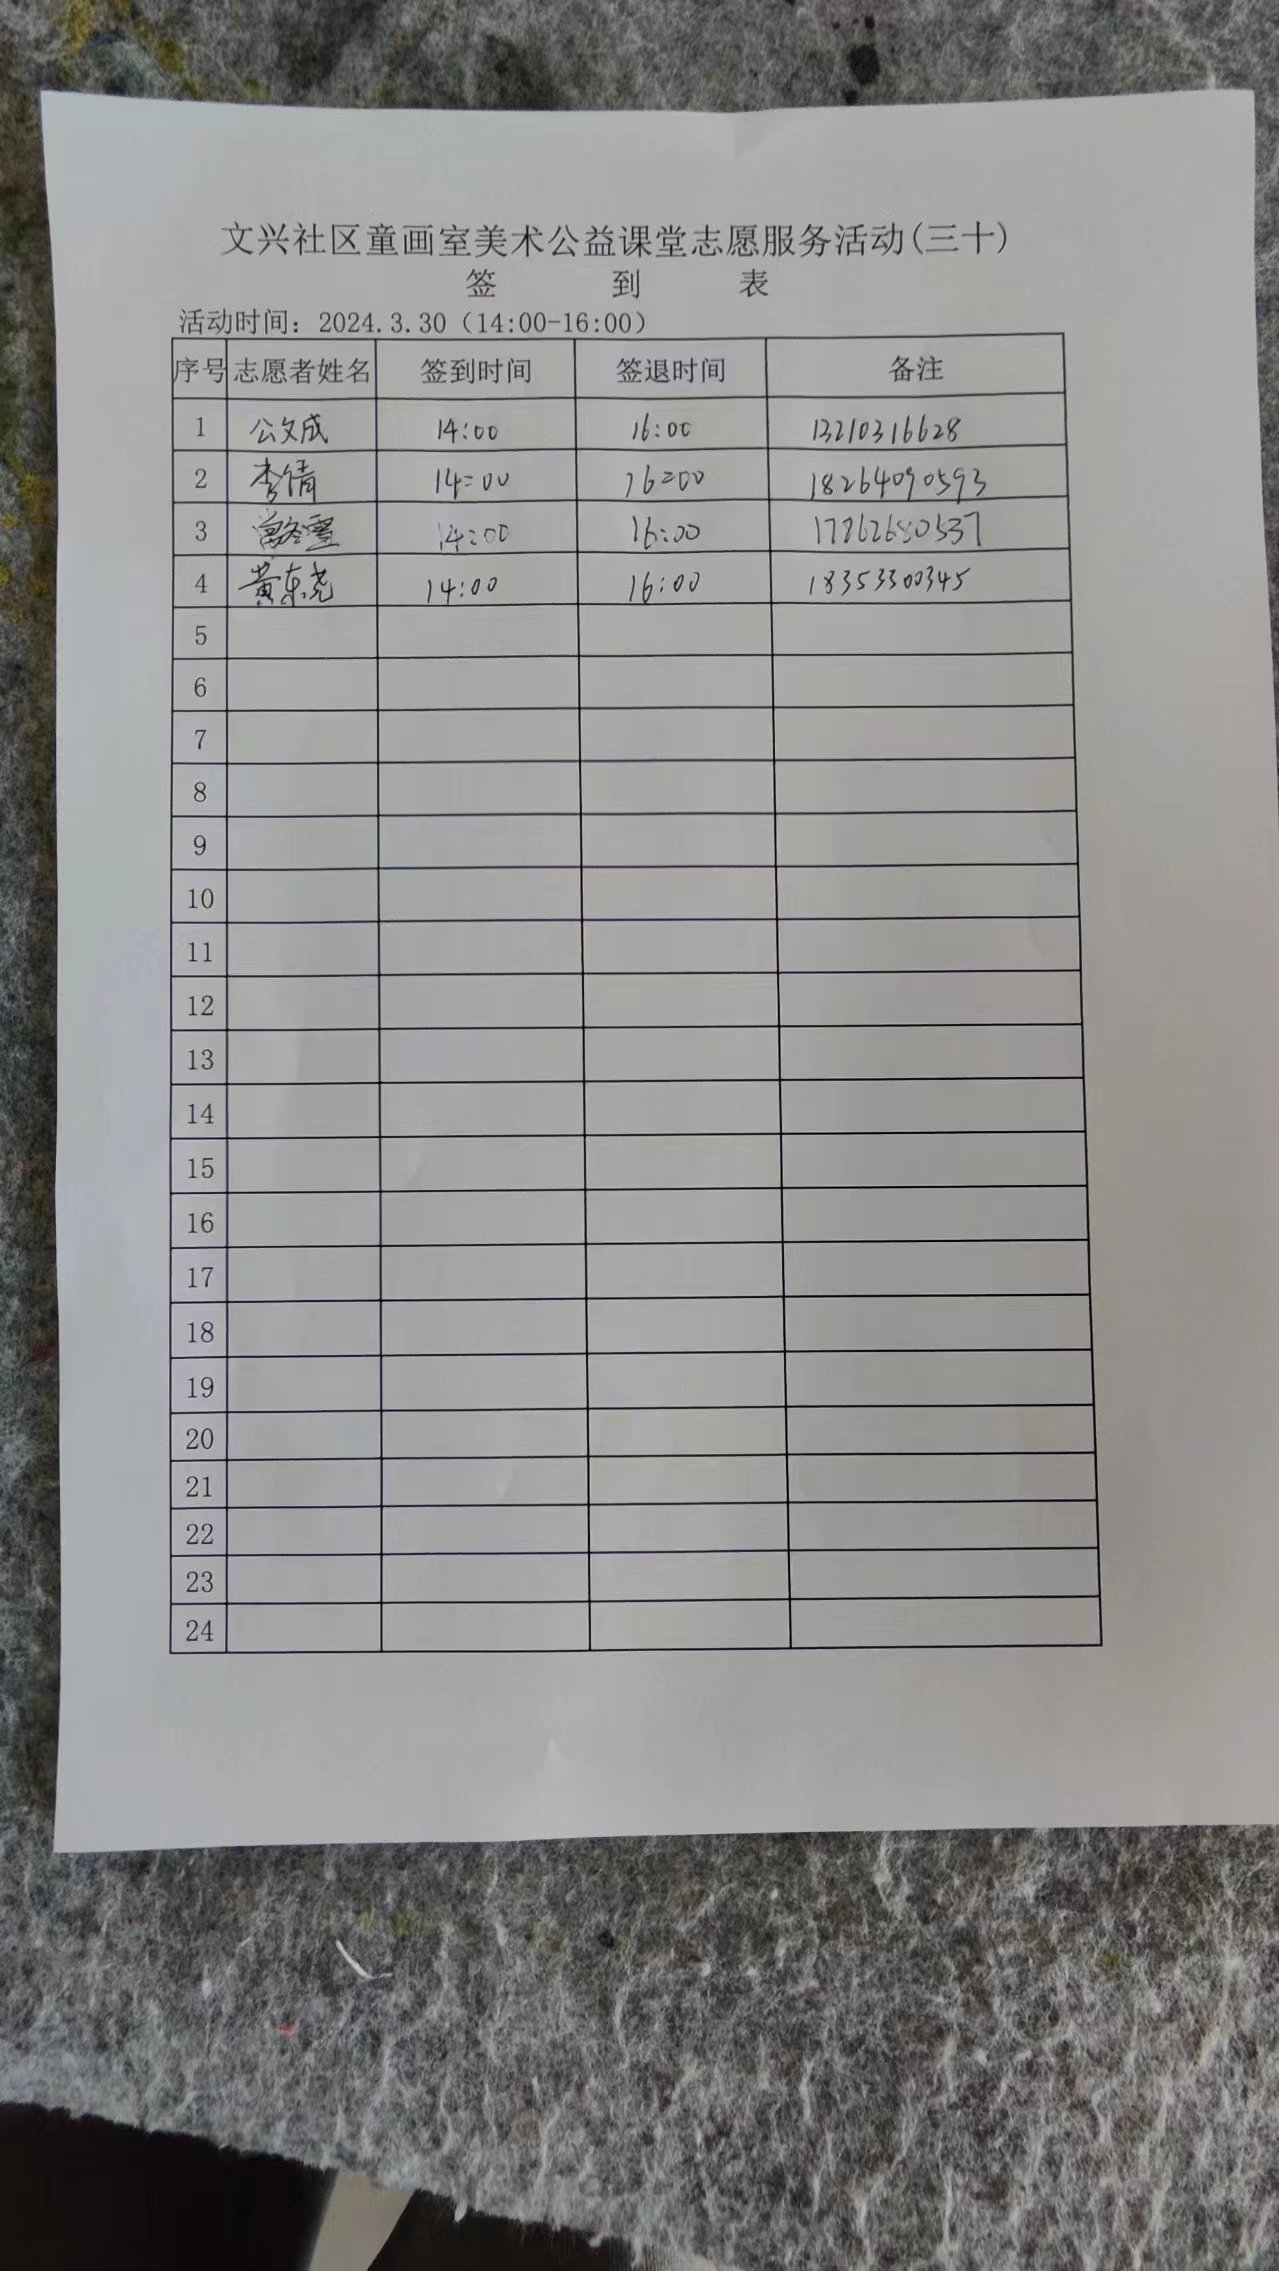 文兴社区童画室美术公益课堂志愿服务活动(三十)
签到表
活动时间：2024.3.30（14:00-16:00）
序号 志愿者姓名 签到时间 签退时间 备注
1 公文成 14:00 16:00 13210316628
2 李倩 14:00 16:00 18264090593
3 14:00 16:00 17862680537
4 黄东尧 14:00 16:00 18353300345
5
6
7
8
9
10
11
12
13
14
15
16
17
18
19
20
21
22
23
24